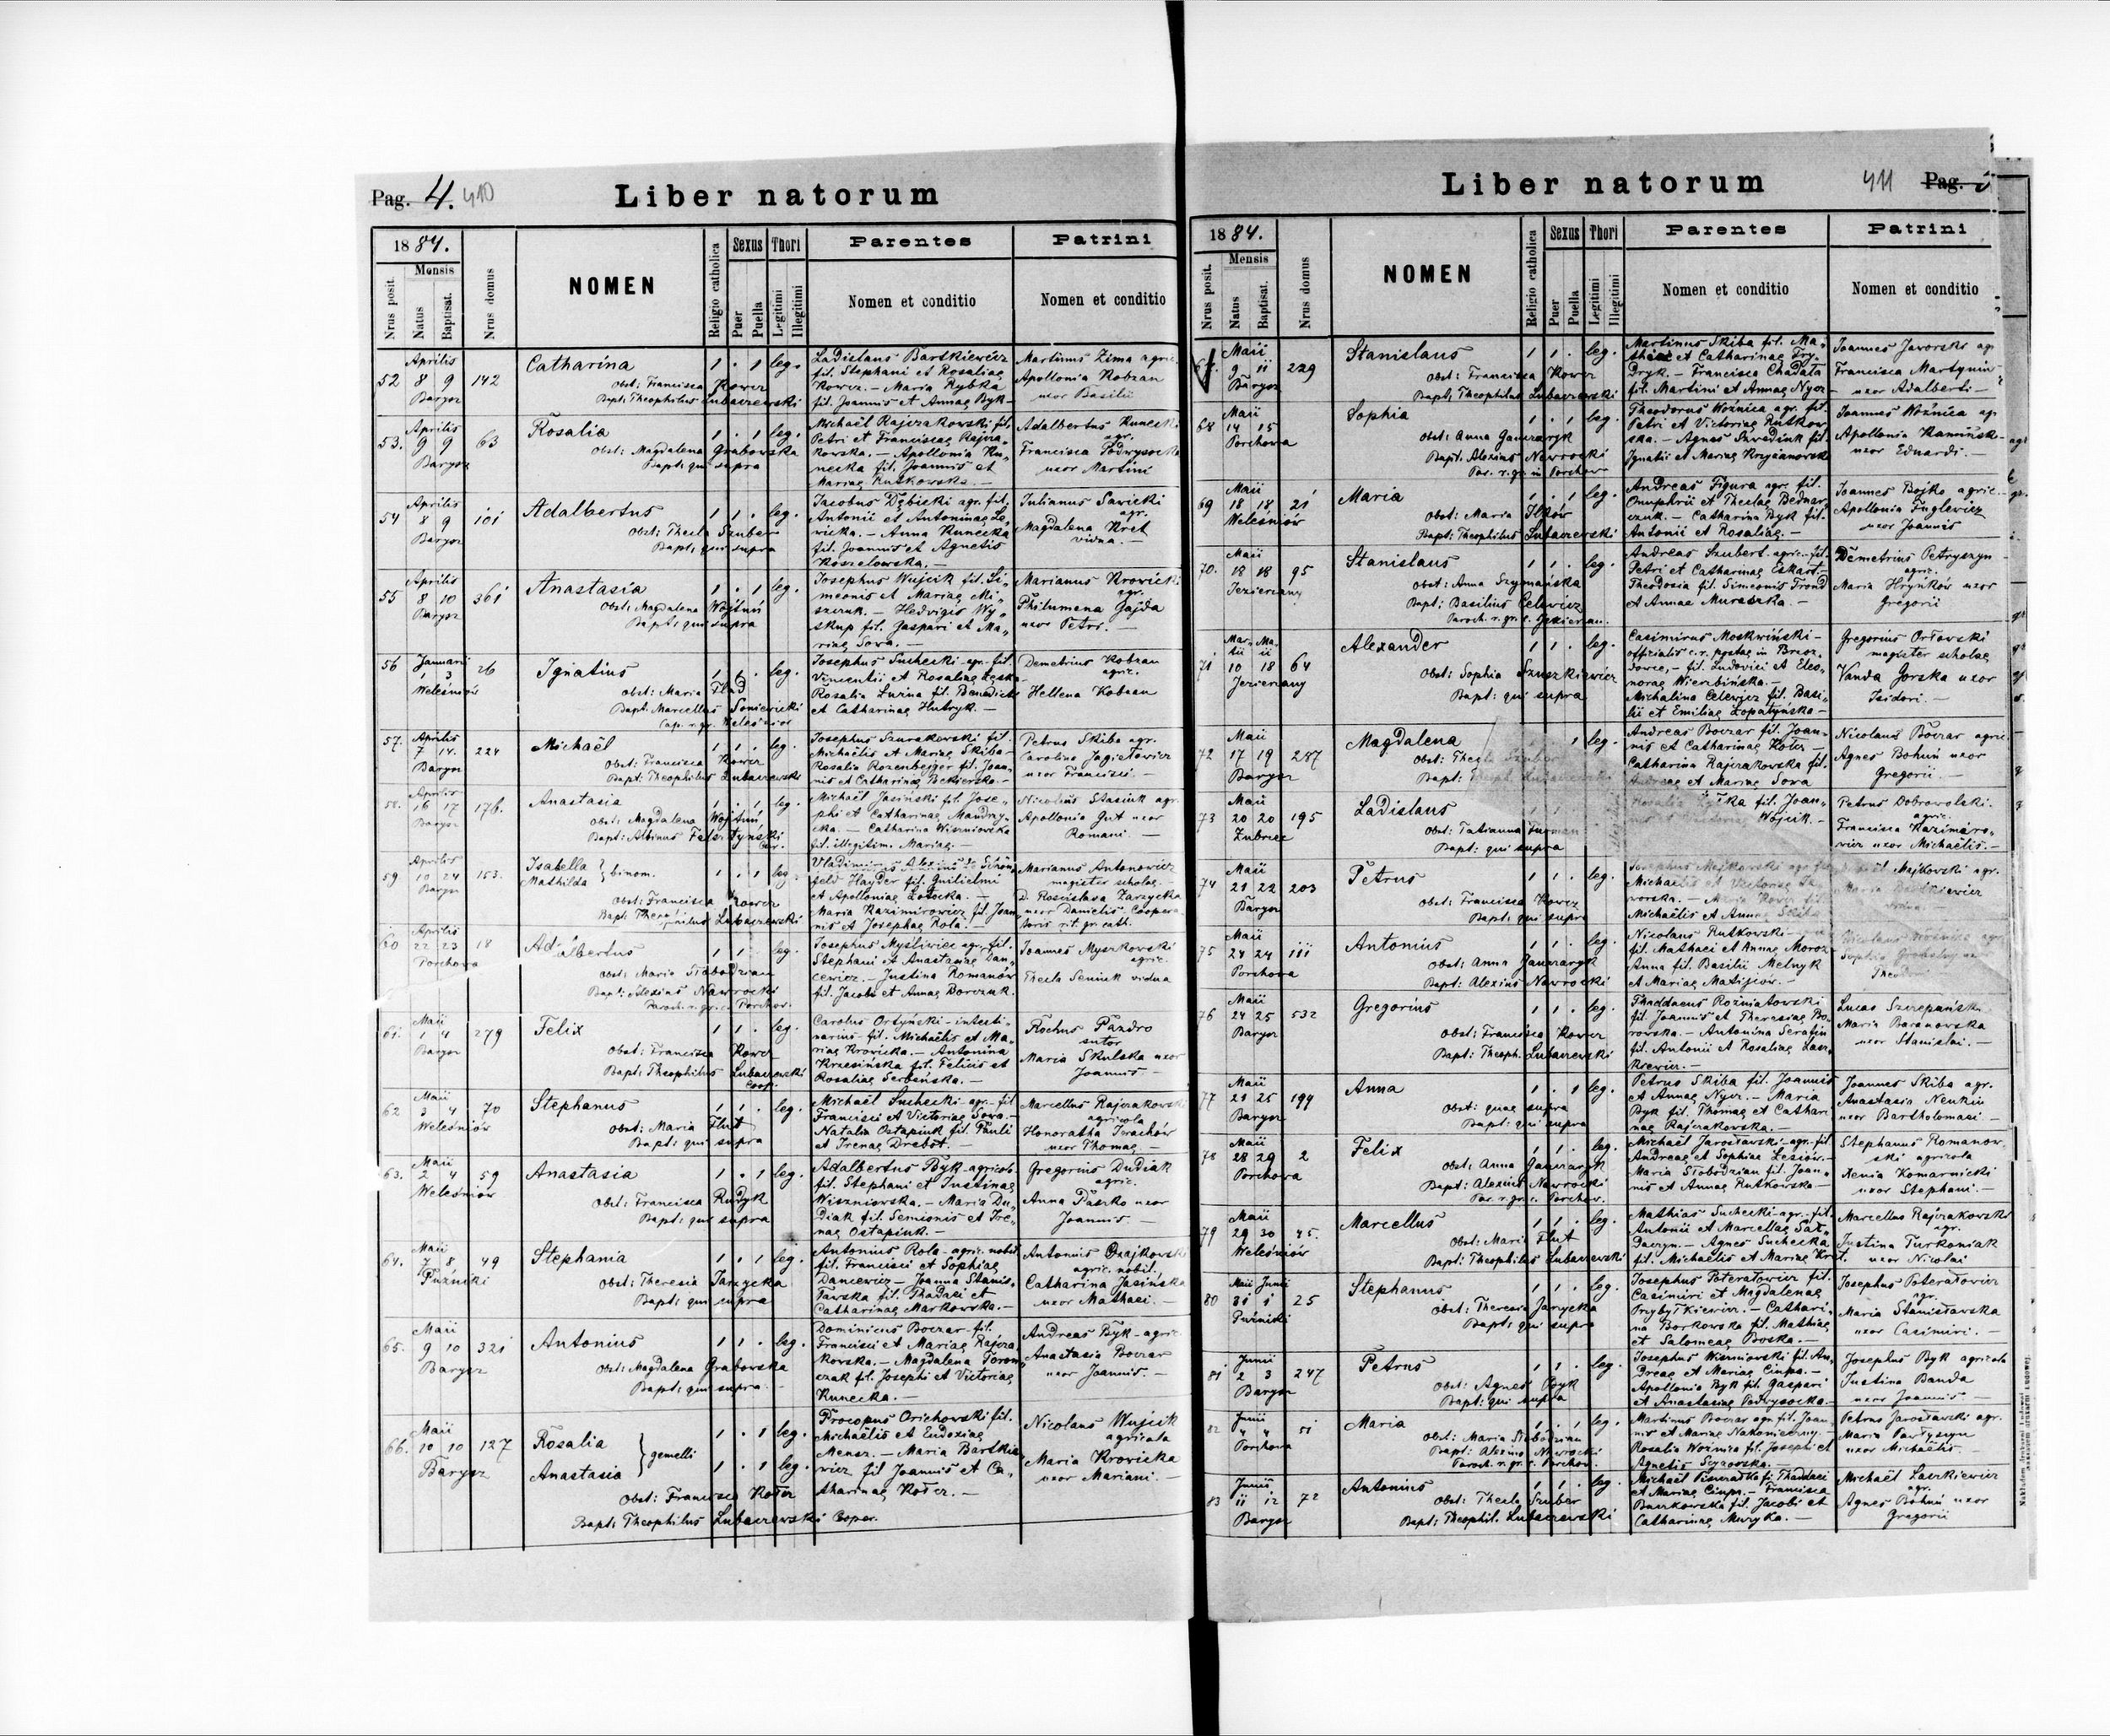 Pag. 4. 410
Liber natorum
1884.
Mensis
Nrus posit.
Natus
Baptisat.
Nrus domus
NOMEN
Religio catholica
Sexus
Puer
Puella
Thori
Legitimi
Illegitimi
Parentes
Nomen et conditio
Patrini
Nomen et conditio
52
Aprilis
8 9
Barysz
142
Catharina
Obst: Francisca Kowcz
Bapt: Theophilus Lubaczewski
1 . 1 leg.
Ladislaus Bartkiewicz
fil. Stephani et Rosaliae
Kowcz. — Maria Rybka
fil. Joannis et Annae Byk —
Martinus Zima agric.
Apollonia Kobzan
uxor Basilii
53.
Aprilis
9 9
Barysz
63
Rosalia
Obst: Magdalena Grabowska
Bapt: qui supra
1 . 1 leg.
Michaël Rajzakowski fil.
Petri et Franciscae Rajcza„
kowska. — Apollonia Ku„
necka fil. Joannis et
Mariae Rutkowska. —
Adalbertus Kunecki
agr.
Francisca Podwysocka
uxor Martini
54
Aprilis
8 9
Barysz
101
Adalbertus
Obst: Thecla Szuber
Bapt: qui supra
1 1 . leg.
Jacobus Dębicki agr. fil.
Antonii et Antoninae Le„
wicka. — Anna Kunecka
fil. Joannis et Agnetis
Koszelowska. —
Julianus Sawicki
agr.
Magdalena Kret
vidua. —
55
Aprilis
8 10
Barysz
361
Anastasia
Obst: Magdalena Wojtuń
Bapt: qui supra
1 . 1 leg.
Josephus Wujcik fil. Si„
meonis et Mariae Mi„
szczuk. — Hedvigis Wy„
skup fil. Gaspari et Ma„
riae Sowa. —
Marianus Krowicki
agr.
Philumena Gajda
uxor Petri. —
56
Januarii
1 3
Weleśniów
26
Ignatius
Obst: Maria Flud
Bapt. Marcellus Soniewicki
Cap. r. gr. Weleśniow
1 1 . leg.
Josephus Suchecki agr. fil.
Vincentii et Rosaliae Leska —
Rosalia Lurina fil. Benedicti
et Catharinae Hutryk. —
Demetrius Kobzan
agric.
Hellena Kobzan
57.
Aprilis
7 14.
Barysz
224
Michaël
Obst: Francisca Kowcz
Bapt: Theophilus Lubaczewski
1 1 . leg.
Josephus Szurakowski fil.
Michaëlis et Mariae Skiba —
Rosalia Rozenbejger fil. Joan„
nis et Catharinae Bekierska. —
Petrus Skiba agr.
Carolina Jagiełowicz
uxor Francisci. —
58.
Aprilis
16 17
Barysz
176.
Anastasia
Obst: Magdalena Wojtuń
Bapt: Albinus Felsztyński
Cur.
1 . 1 leg.
Michaël Jasiński fil. Jose„
phi et Catharinae Maudry„
cka. — Catharina Wiszniowska
fil. illegitim. Mariae. —
Nicolaus Stasiuk agr.
Apollonia Gut uxor
Romani. —
59
Aprilis
10 24
Barysz
153.
Isabella
Mathilda } binom.
Obst: Francisca Kowcz
Bapt: Theophilus Lubaczewski
1 . 1 leg.
Vladimirus Alexius de Schön„
feld Hayder fil. Guilielmi
et Apolloniae Łotocka. —
Maria Kazimirowicz fil. Joan„
nis et Josephae Rola. —
Marianus Antonowicz
magister scholae.
D. Rościsława Zarzycka
uxor Danielis Coopera„
toris r. t. gr. cath.
60
Aprilis
22 23
Porchowa
18
Adalbertus
Obst: Maria Słobodzian
Bapt: Alexius Nawrocki
Paroch. r. gr. c. Porchov.
1 1 . leg.
Josephus Myśliwiec agr. fil.
Stephani et Anastasiae Dan„
cewicz. — Justina Romanów
fil. Jacobi et Annae Borczuk.
Joannes Myszkowski
agric.
Thecla Seniuk vidua
61.
Maii
1 4
Barysz
279
Felix
Obst: Francisca Kowcz
Bapt: Theophilus Lubaczewski
Coop.
1 1 . leg.
Carolus Ortyński — intesti„
narius — fil. Michaëlis et Ma„
riae Krowicka. — Antonina
Krzesińska fil. Felicis et
Rosaliae Serbeńska. —
Rochus Pazdro
sutor
Maria Skulska uxor
Joannis —
62
Maii
3 4
Weleśniów
70
Stephanus
Obst: Maria Flut
Bapt: qui supra
1 1 . leg.
Michaël Suchecki — agr. — fil.
Francisci et Victoriae Sowa. —
Natalia Ostapiuk fil. Pauli
et Irenae Drabot. —
Marcellus Rajczakowski
agricola
Honoratha Jrachów
uxor Thomae
63.
Maii
2 4
Weleśniów
59
Anastasia
Obst: Francisca Rudyk
Bapt: qui supra
1 . 1 leg.
Adalbertus Byk — agricola
fil. Stephani et Justinae
Wiszniowska. — Maria Du„
diak fil. Semionis et Ire„
nae Ostapiuk. —
Gregorius Dudiak
agric.
Anna Paszko uxor
Joannis —
64.
Maii
7 8
Puźniki
49
Stephania
Obst: Theresia Jarzycka
Bapt: qui supra
1 . 1 leg.
Antonius Rola — agric. nobil.
fil. Francisci et Sophiae
Dancewicz — Joanna Stanis„
ławska fil. Thadaei et
Catharinae Markowska. —
Antonius Dzajkowski
agric. nobil.
Catharina Jasińska
uxor Mathaei. —
65.
Maii
9 10
Barysz
321
Antonius
Obst: Magdalena Grabowska
Bapt: qui supra
1 1 . leg.
Dominicus Boczar — fil.
Francisci et Mariae Rajcza„
kowska. — Magdalena Toroń„
czak fil. Josephi et Victoriae
Kunecka. —
Andreas Byk — agric.
Anastasia Boczar
uxor Joannis. —
66.
Maii
10 10
Barysz
127
Rosalia
Anastasia } gemelli
Obst: Francisca Kotcz
Bapt: Theophilus Lubaczewski Cooper.
1 . 1 leg.
1 . 1 leg.
Procopus Orichowski fil.
Michaëlis et Eudoxiae
Mensz. — Maria Bartkie„
wicz fil Joannis et Ca„
tharinae Kotcz. —
Nicolaus Wujcik
agricola
Maria Krowicka
uxor Mariani. —
Liber natorum
411 Pag.
1884.
Mensis
Nrus posit.
Natus
Baptisat.
Nrus domus
NOMEN
Religio catholica
Sexus
Puer
Puella
Thori
Legitimi
Illegitimi
Parentes
Nomen et conditio
Patrini
Nomen et conditio
67.
Maii
9 11
Barysz
229
Stanislaus
Obst: Francisca Kowcz
Bapt: Theophilus Lubaczewski
1 1 . leg.
Martinus Skiba fil. Ma„
thiae et Catharinae Fry„
dryk — Francisca Chadała
fil. Martini et Annae Nycz —
Joannes Jaworski ag
Francisca Martyniu
uxor Adalberti —
68
Maii
14 15
Porchowa
Sophia
Obst: Anna Ganczaryk
Bapt. Alexius Nawrocki
Par. r. gr. in Porchow
1 . 1 leg.
Theodorus Woźnica agr. fil.
Petri et Victoriae Rutkow„
ska. — Agnes Szwediuk fil.
Ignatii et Mariae Krzyżanowska
Joannes Woźnica agr.
Apollonia Kamińska
uxor Eduardi. —
69
Maii
18 18
Weleśniów
21
Maria
Obst: Maria Ilków
Bapt: Theophilus Lubaczewski
1 . 1 leg.
Andreas Figura agr. fil.
Onuphrii et Theclae Bednar„
czuk. — Catharina Byk fil.
Antonii et Rosaliae. —
Joannes Bojko agric.
Apollonia Fuglewicz
uxor Joannis
70.
Maii
18 18
Jezierzany
95
Stanislaus
Obst: Anna Szymańska
Bapt: Basilius Celewicz
Paroch. r. gr. c. Jezierzan.
1 1 . leg.
Andreas Szubert — agric. fil.
Petri et Catharinae Eskart. —
Theodosia fil. Simeonis Trond
et Annae Muraszka. —
Demetrius Petryszyn
agric.
Maria Hryńków uxor
Gregorii
71
Mar„ Ma„
tii ii
10 18
Jezierzany
64
Alexander
Obst: Sophia Szuszkiewicz
Bapt: qui supra
1 1 . leg.
Casimirus Moskwiński —
officialis c. r. postae in Brzoz„
dowce, — fil. Ludovici et Eleo„
norae Wierzbińska. —
Michalina Celewicz fil. Basi„
lii et Emiliae Łopatyńska —
Gregorius Orłowski
magister scholae
Vanda Gorska uxor
Isidori. —
72
Maii
17 19
Barysz
287
Magdalena
Obst: Thecla Szuber
Bapt: Theoph. Lubaczewski
1 leg.
Andreas Boczar fil. Joan„
nis et Catharinae Kotcz —
Catharina Rajczakowska fil.
Andreae et Mariae Sowa
Nicolaus Boczar agric.
Agnes Bohuń uxor
Gregorii. —
73
Maii
20 20
Zubrzec
195
Ladislaus
Obst: Tatianna Furman
Bapt: qui supra
Rosalia fil. Joan„
nis et Victoriae Wójcik. —
Petrus Dobrowolski.
agric.
Francisca Kazimiro„
wicz uxor Michaëlis. —
74
Maii
21 22
Barysz
203
Petrus
Obst: Francisca Kowcz
Bapt: qui supra
1 1 . leg.
Josephus Majkowski agr. fil.
Michaëlis et Victoriae
worska. — Maria Kowcz fil.
Michaëlis et Annae Skiba
Majkowski agr.
Maria Bartkiewicz
vidua. —
75
Maii
24 24
Porchowa
111
Antonius
Obst: Anna Janczaryk
Bapt: Alexius Nawrocki
1 1 . leg.
Nicolaus Rutkowski
fil. Mathaei et Annae Moroz —
Anna fil. Basilii Melnyk
et Mariae Matijiow. —
Nicolaus Woźnica agr.
Sophia
Theodori
76
Maii
24 25
Barysz
532
Gregorius
Obst: Francisca Kowcz
Bapt: Theoph. Lubaczewski
1 1 . leg.
Thaddaeus Rozniatowski
fil. Joannis et Theresiae Bo„
rowska. — Antonina Serafin
fil. Antonii et Rosaliae Łasz„
kiewicz. —
Lucas Szczepański
Maria Baranowska
uxor Stanislai. —
77
Maii
21 25
Barysz
199
Anna
Obst: quae supra
Bapt: qui supra
1 . 1 leg.
Petrus Skiba fil. Joannis
et Annae Nycz. — Maria
Byk fil. Thomae et Cathari„
nae Rajczakowska. —
Joannes Skiba agr.
Anastasia Neukin
uxor Bartholomaei —
78
Maii
28 29
Porchowa
2
Felix
Obst: Anna Janczaryk
Bapt: Alexius Nawrocki
Par. r. gr. c. Porchov.
1 1 . leg.
Michaël Jarosławski — agr. — fil.
Andreae et Sophiae Lesiów. —
Maria Słobodzian fil. Joan„
nis et Annae Rutkowska —
Stephanus Romanow„
ski agricola
Xenia Komarnicki
uxor Stephani. —
79
Maii
29 30
Weleśniów
45.
Marcellus
Obst: Maria Flut
Bapt: Theophilus Lubaczewski
1 1 . leg.
Mathias Suchecki — agr. — fil.
Antonii et Marcellae Sał„
daczyn — Agnes Suchecka
fil. Michaëlis et Mariae Kret.
Marcellus Rajczakowski
agr.
Justina Turkoniak
uxor Nicolai
80
Maii Junii
31 1
Puźniki
25
Stephanus
Obst: Theresia Jarycka
Bapt: qui supra
1 1 . leg.
Josephus Poteratowicz fil.
Casimiri et Magdalenae
Przybyłkiewicz. — Cathari„
na Borkowska fil. Mathiae
et Salomeae Boska. —
Josephus Poteratowicz
agr.
Maria Stanisławska
uxor Casimiri. —
81
Junii
2 3
Barysz
247
Petrus
Obst: Agnes Byk
Bapt: qui supra
1 1 . leg.
Josephus Wiszniowski fil. An„
dreae et Mariae Ciupa. —
Apollonia Byk fil. Gaspari
et Anastasiae Podwysocka. —
Josephus Byk agricola
Justina Banda
uxor Joannis —
82
Junii
4 4
Porchowa
51
Maria
Obst: Maria Słobodzian
Bapt: Alexius Nawrocki
Paroch. r. gr. c. Porchov.
1 . 1 leg.
Martinus Boczar agr. fil. Joan„
nis et Mariae Nakonieczny. —
Rosalia Woźnica fil. Josephi et
Agnetis Syzowska. —
Petrus Jarosławski agr.
Maria Pawłyszyn
uxor Michaëlis. —
83
Junii
11 12
Barysz
72
Antonius
Obst: Thecla Szuber
Bapt: Theophil. Lubaczewski
1 1 . leg.
Michaël fi. Thaddaei
et Mariae Ciupa. — Francisca
Baczkowska fil. Jacobi et
Catharinae Muzyka. —
Michaël Laszkiewicz
agr.
Agnes Bohuń uxor
Gregorii